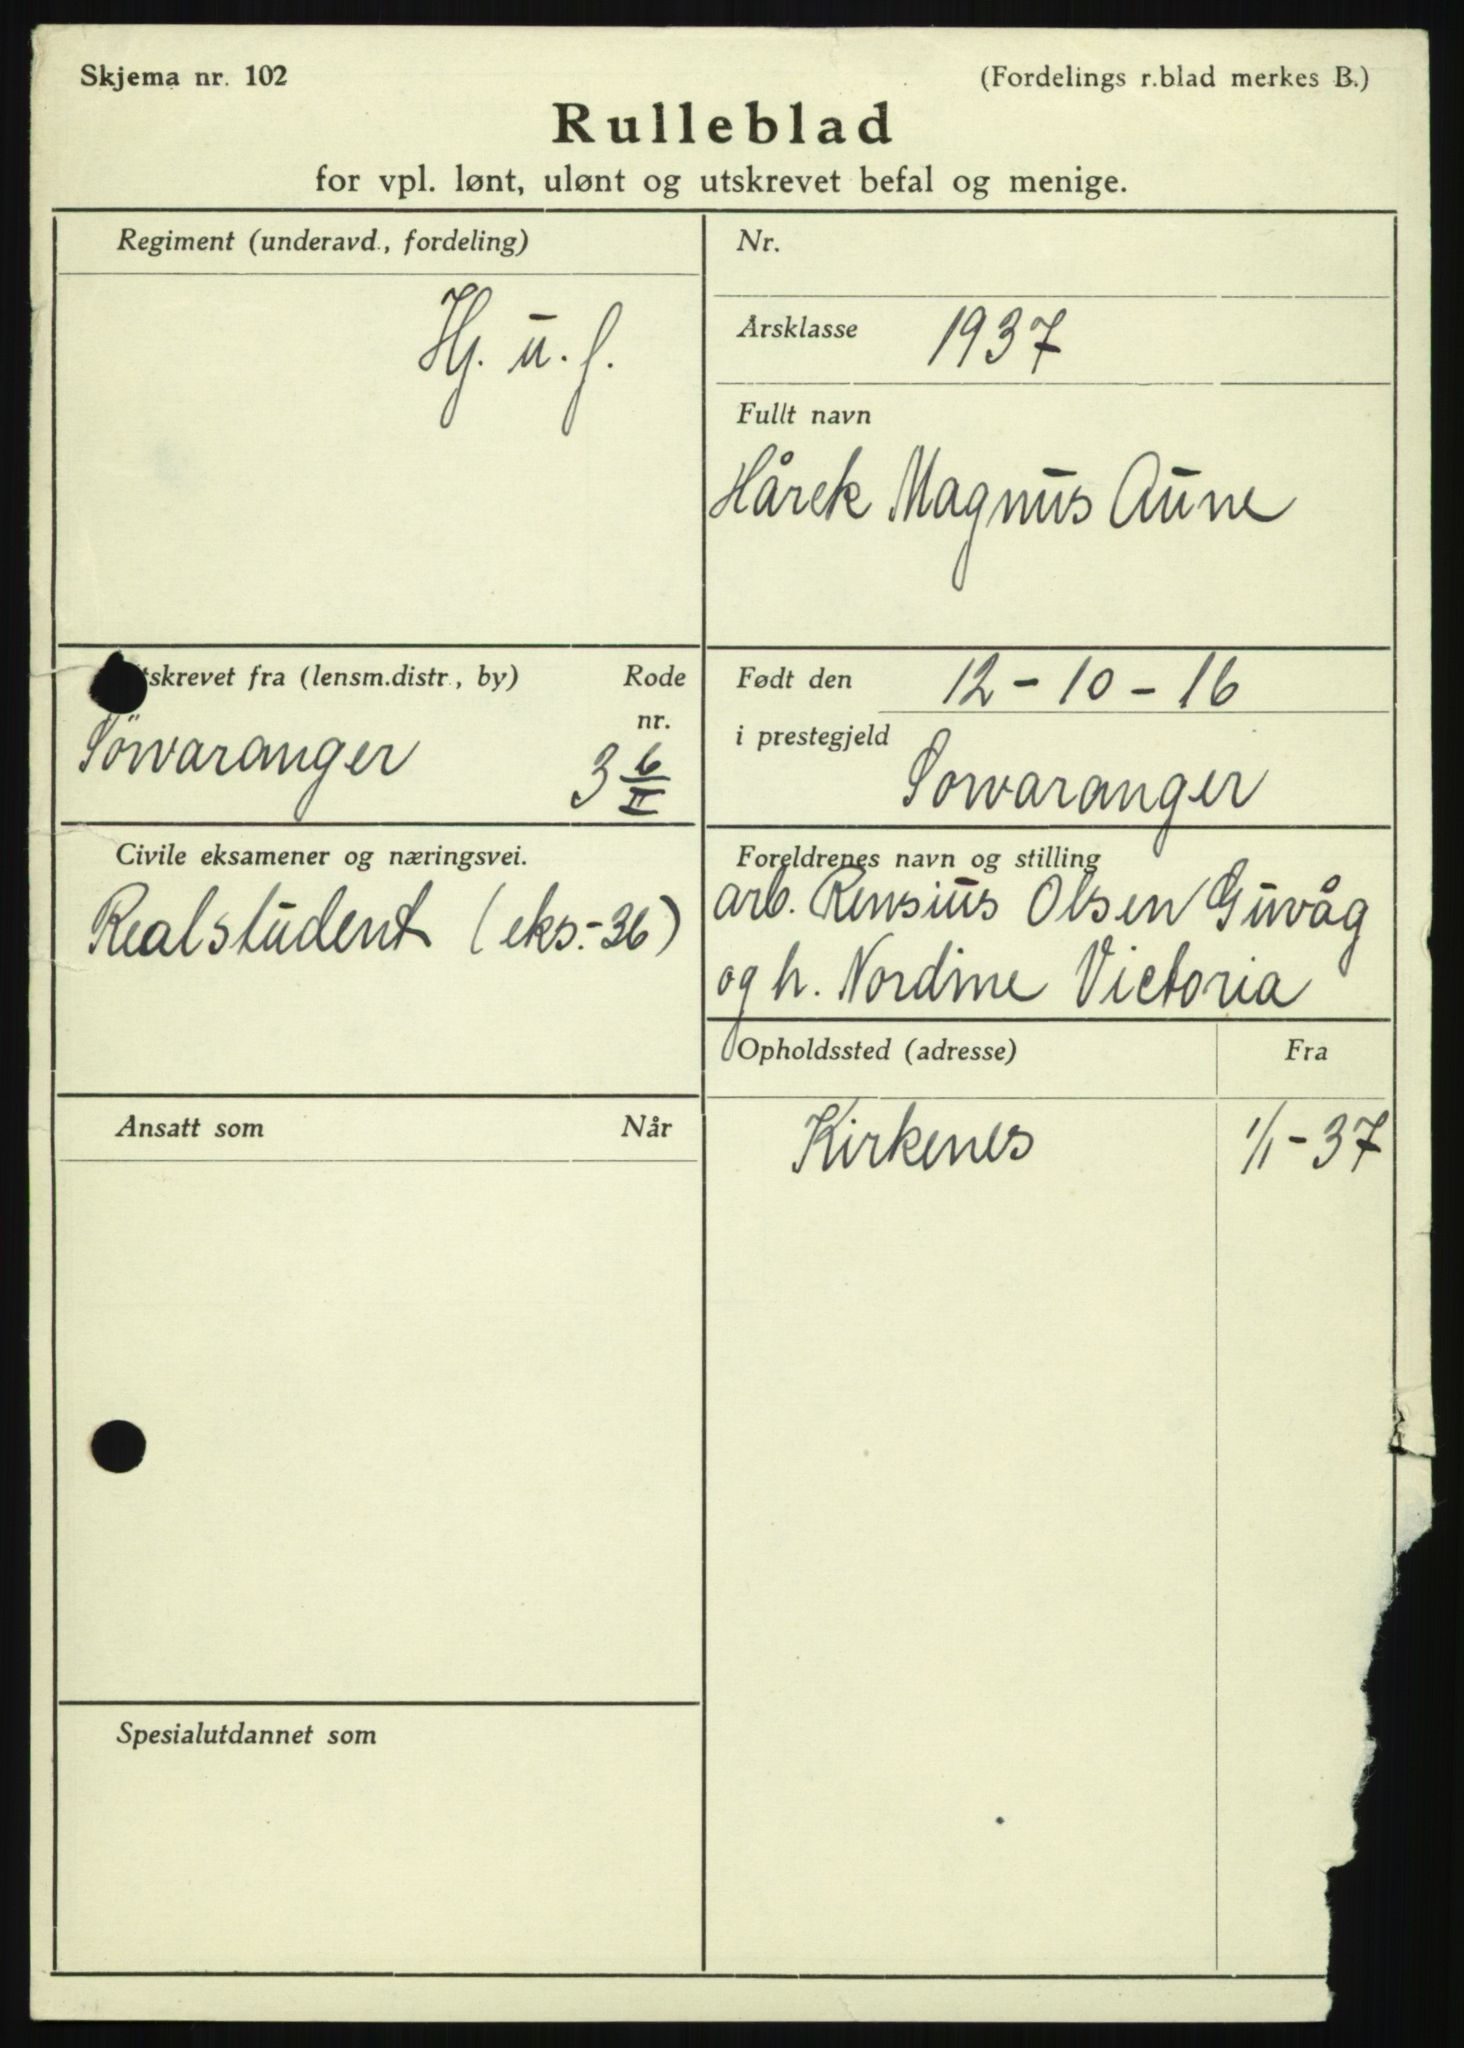 Skjema nr. 102
(Fordelings r.blad merkes B.)
Rulleblad
for vpl. lønt, ulønt og utskrevet befal og menige.
Regiment (underavd., fordeling)
Hj. u. f.
Nr.
Årsklasse 1937
Fullt navn
Hårek Magnus Aune
tskrevet fra (lensm.distr., by) Rode
nr.
Sörvaranger 3 6/II
Født den 12-10-16
i prestegjeld
Sørvaranger
Civile eksamener og næringsvei.
Realstudent (eks.-36)
Foreldrenes navn og stilling
arb. Rensius Olsen Guvåg
og h. Nordine Victoria
Opholdssted (adresse) Fra
Kirkenes 1/1-37
Ansatt som Når
Spesialutdannet som